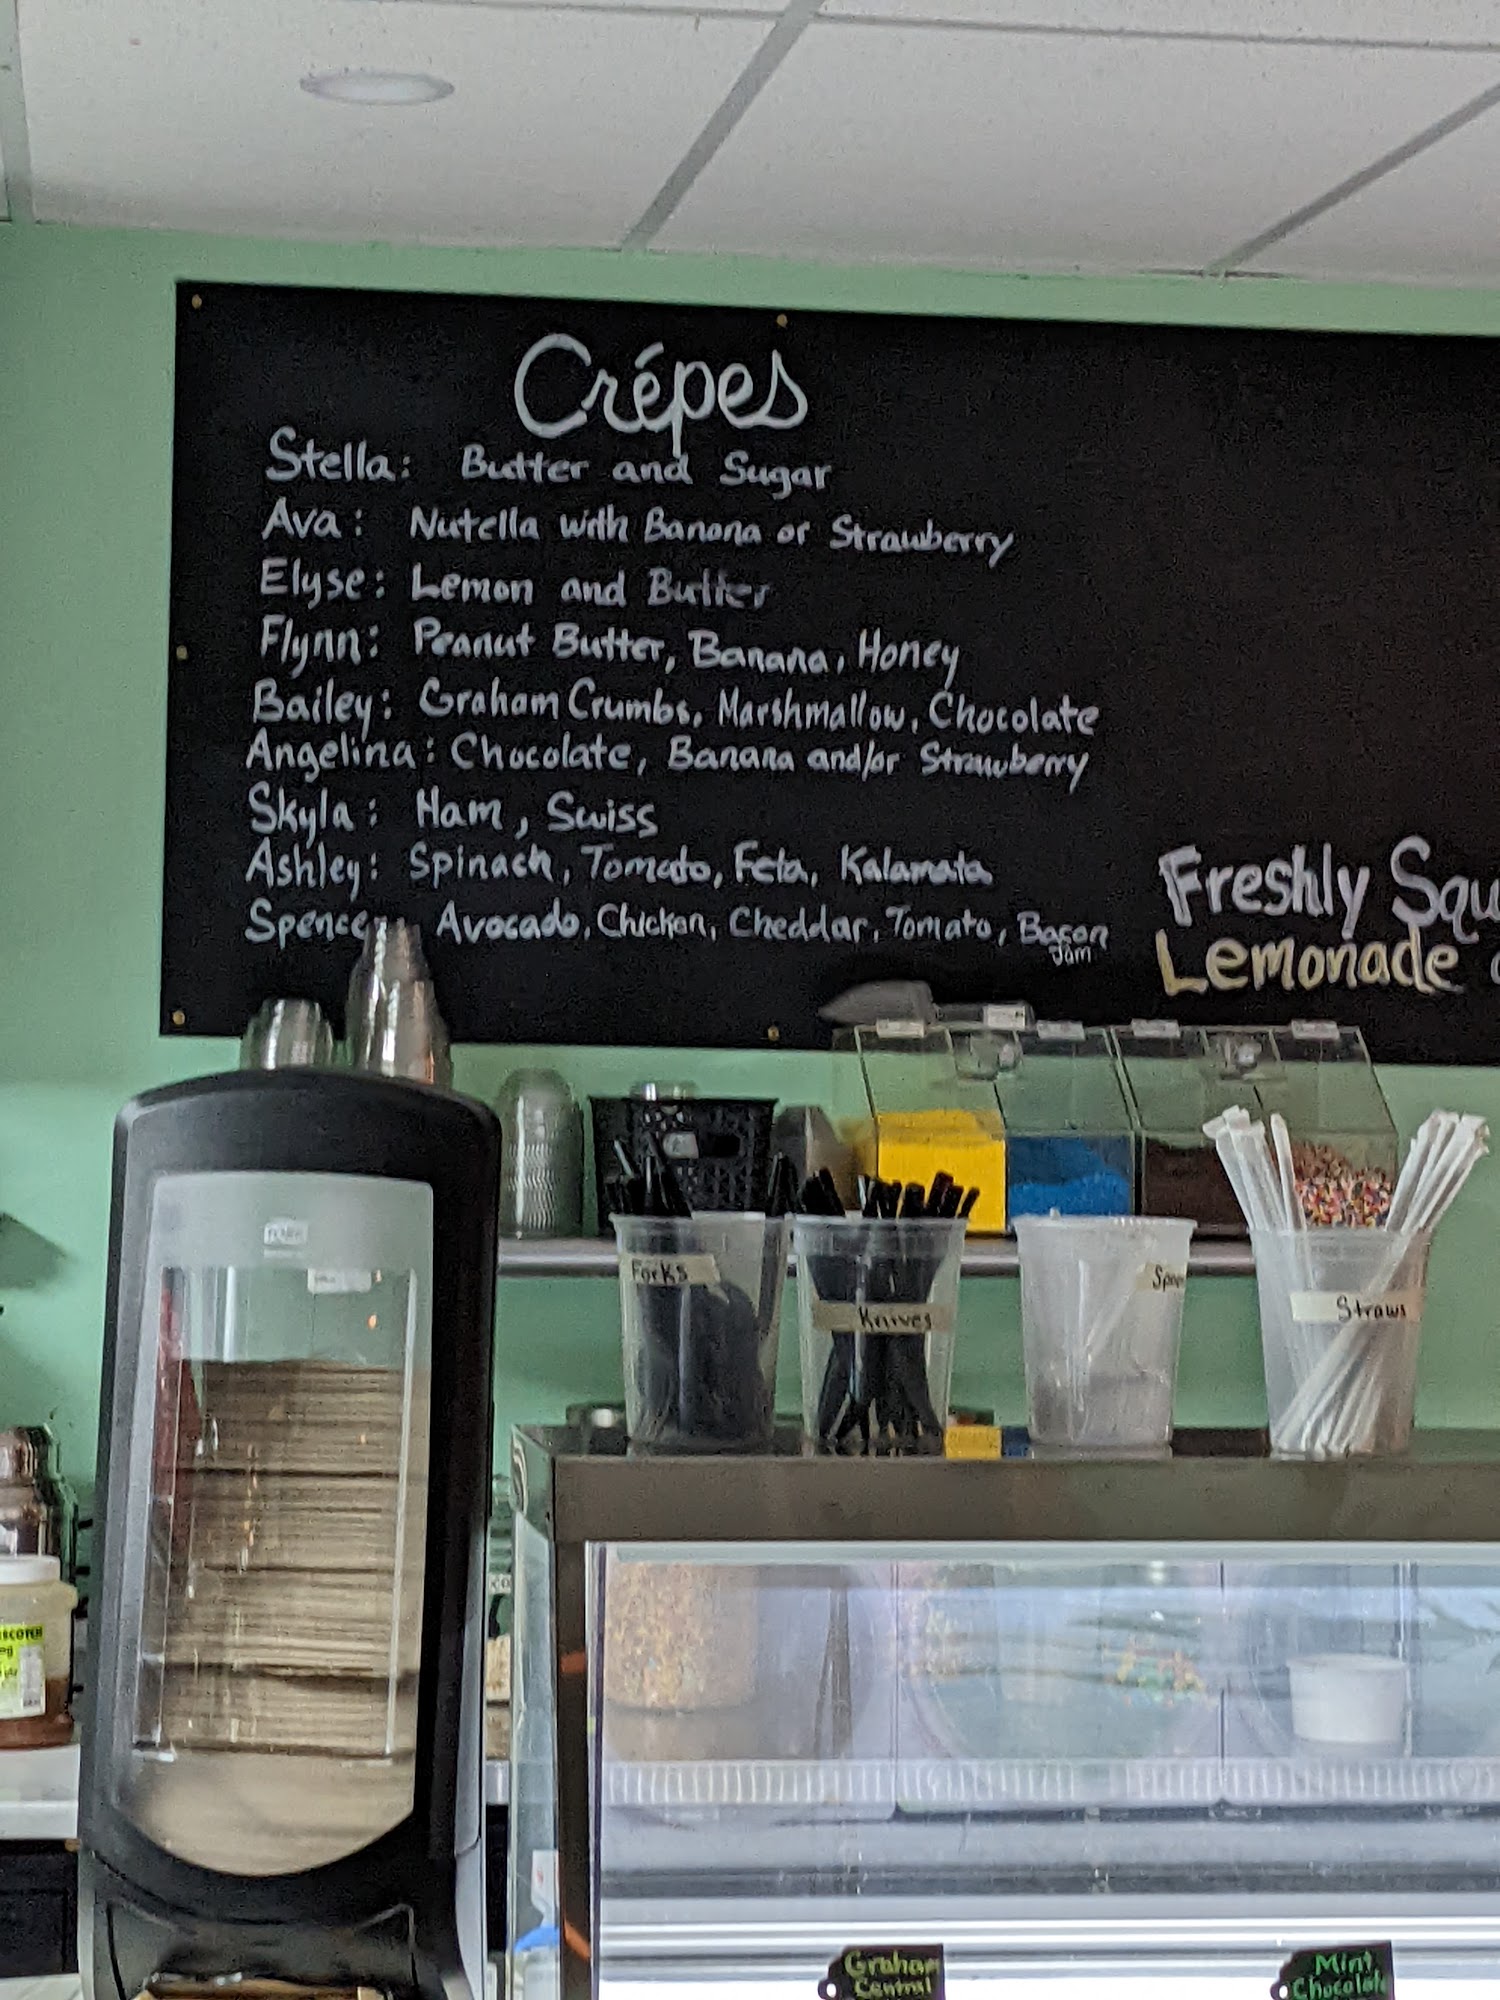 Crépes
Stella: Butter and Sugar
Ava: Nutella with Banana or Strawberry
Elyse: Lemon and Butter
Flynn: Peanut Butter, Banana, Honey
Bailey: Graham Crumbs, Marshmallow, Chocolate
Angelina: Chocolate, Banana and/or Strawberry
Skyla: Ham, Swiss
Ashley: Spinach, Tomato, Feta, Kalamata
Spencer: Avocado, Chicken, Cheddar, Tomato, Bacon
Jam
Freshly Squ
Lemonade
Forks
Knives
Spo
Straws
Graham
Central
Mint
Chocolate